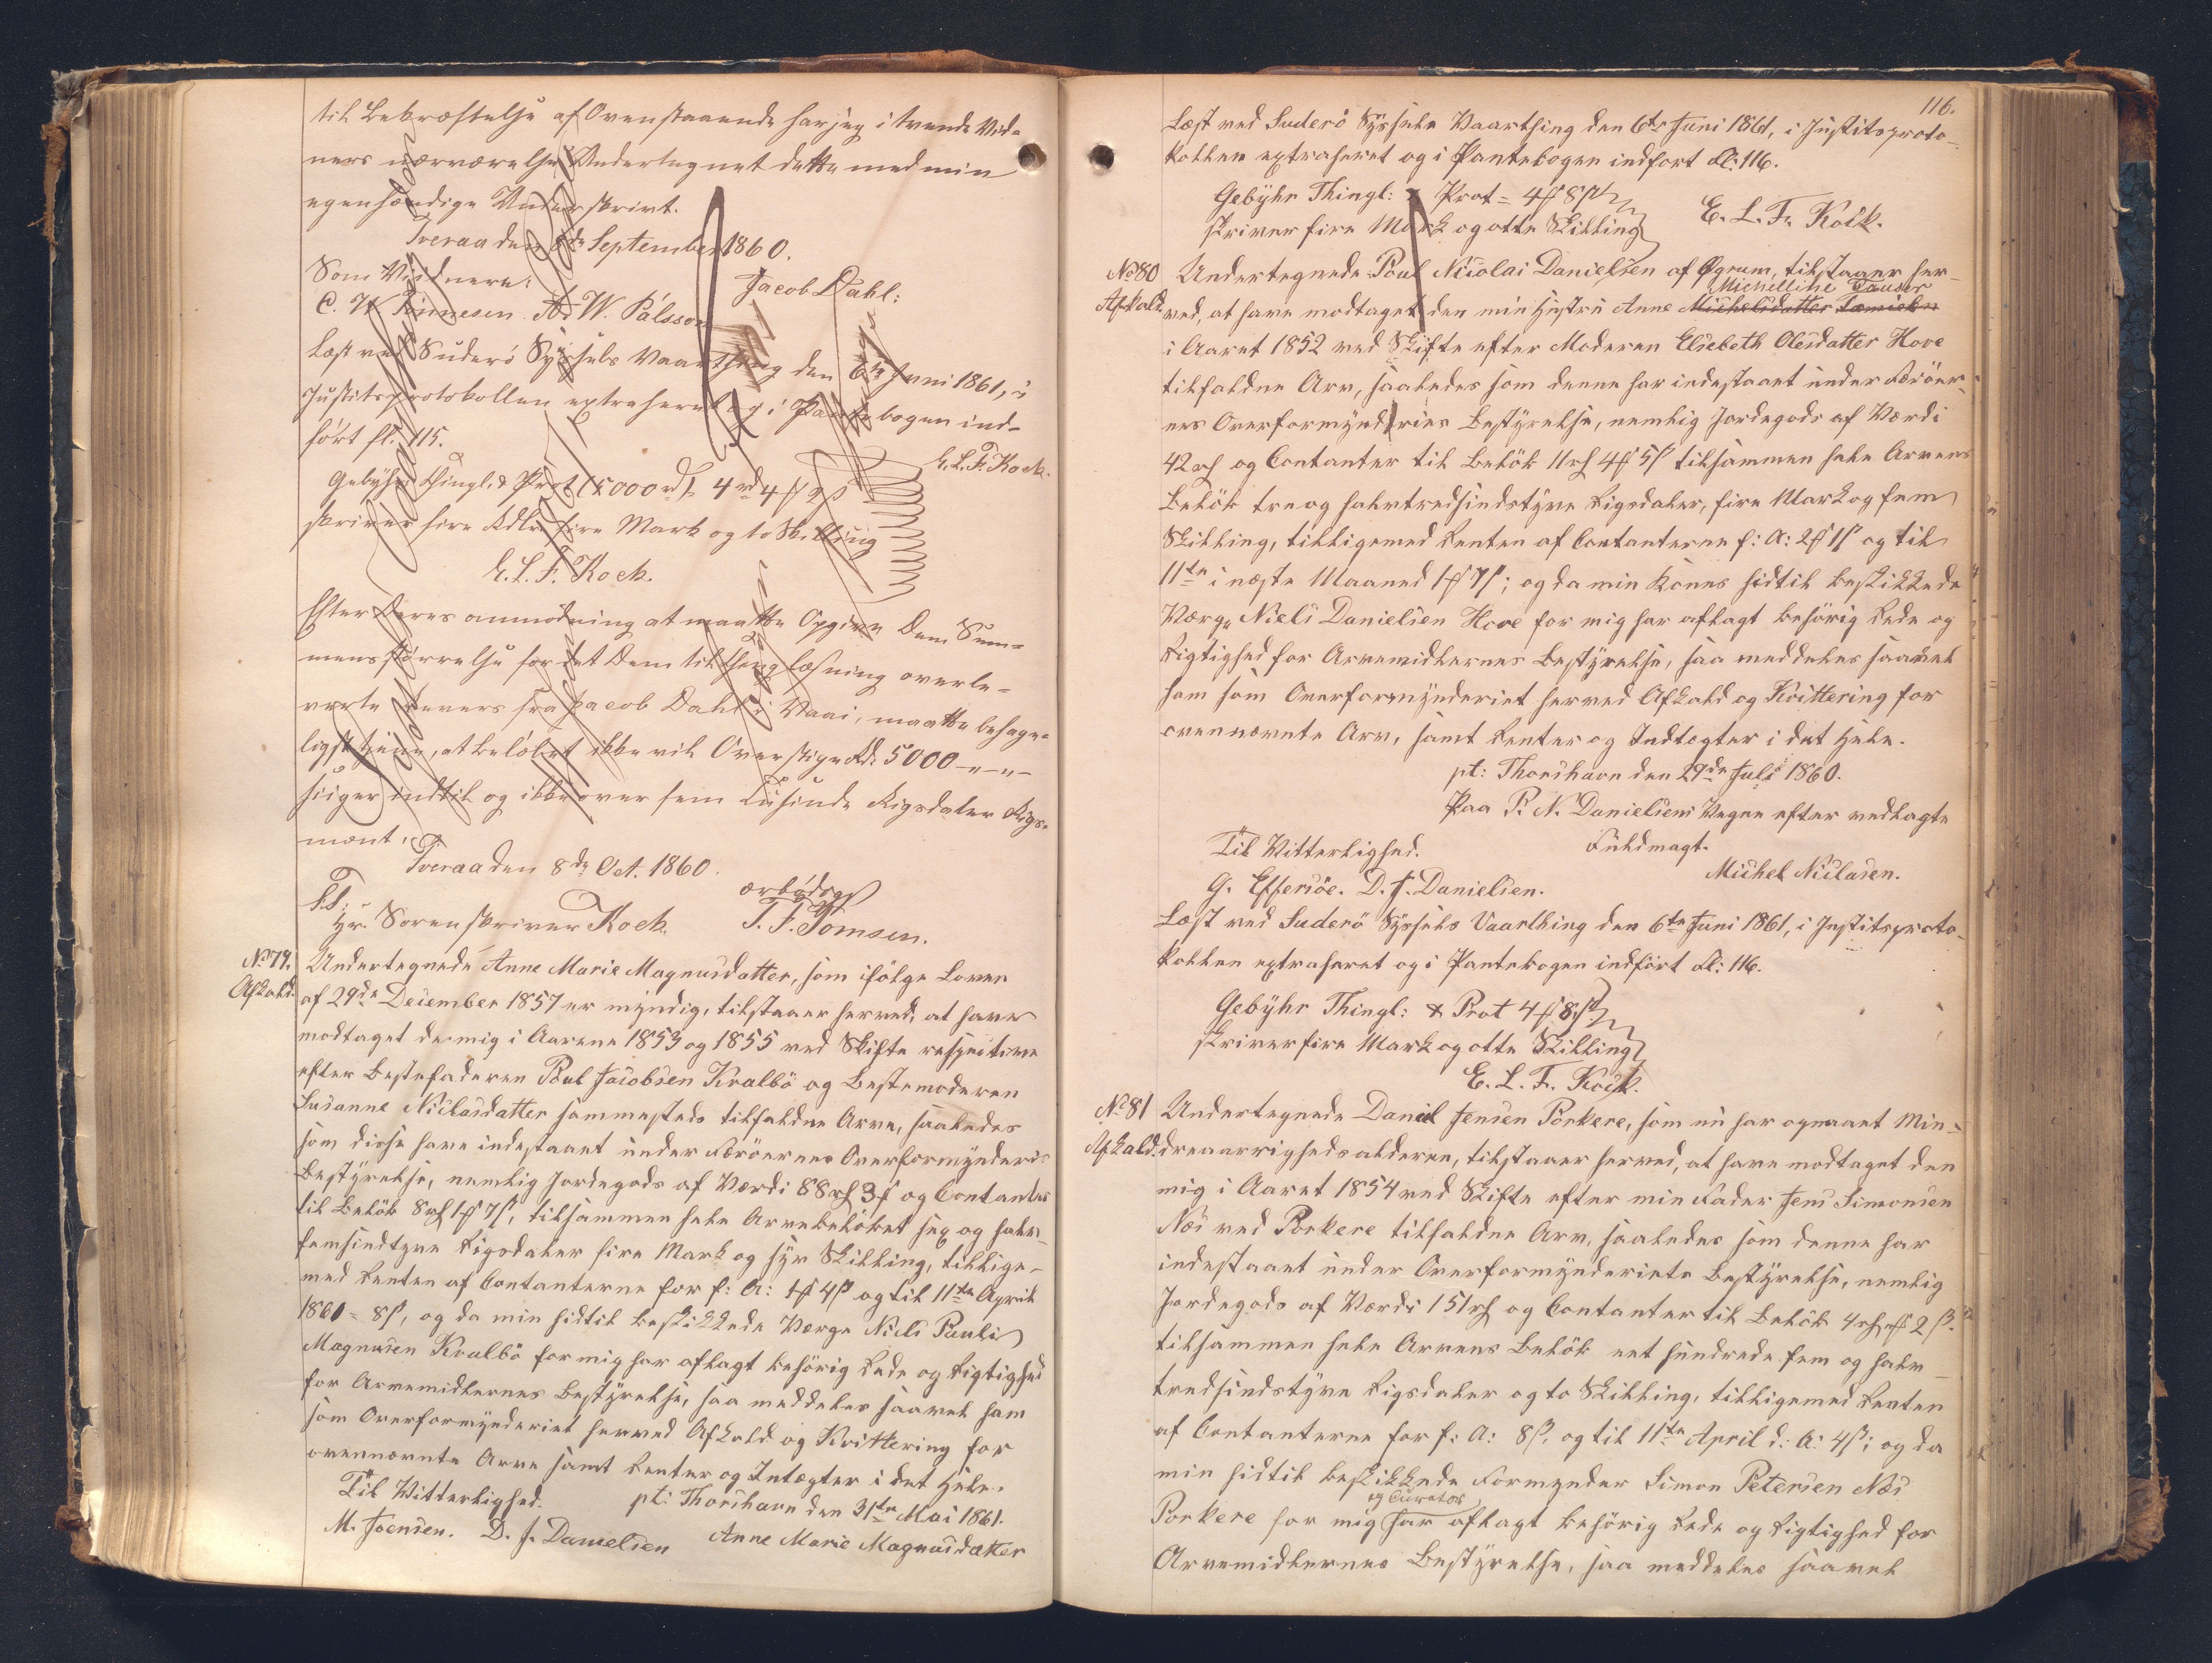 til Bekræftelse af Ovenstaaende har jeg i tvende Vid-
ners nærværelse Undertegnet dette med min
egenhændige Underskrivt.
Tveraa den September 1860.
Som Vidnere: Jacob Dahl:
C. W. A. W. Pálsson
Læst ved Suderö Syssels Vaarthing den 6te Juni 1861, i
Justitsprotokollen extraheret og i Pantebogen ind-
fört fl. 115.
E. L. F. Kock.
Gebyhr Thingl. & Prot (5000 rd) 4 rd 4 # 2 ß
skriver fire Rdlr fire Mark og to Skilling
E. L. F. Kock.
Efter Deres anmodning at maatte Opgive Dem Sum-
mens störrelse for det Dem til thinglæsning overle-
verte fra Jacob Dahl i Vaai, maatte behage-
ligst tjene, at belöbet ikke vil Overstige Rd. 5000 -"-"-
siiger indtil og ikke over fem Tusinde Rigsdaler Rigs-
mønt.
Tveraa den 8de Oct. 1860.
ærbödigst
S.T.
Hr. Sorenskriver Kock. T. F. Tomsen.
No 79. Undertegnede Anne Marie Magnusdatter, som ifölge Loven
Afkald. af 29de December 1857 er myndig, tilstaaer herved, at have
modtaget de mig i Aarene 1853 og 1855 ved Skifte respective
efter Bestefaderen Poul Jacobsen Kvalbö og Bestemoderen
Susanne Niclasdatter sammesteds tilfaldne Arve, saaledes
som disse have indestaaet under Færöernes Overformynderis
Bestyrelse, nemlig Jordegods af Værdi 88 rd 3 # og Contanter
til Belöb 8 rd 1 # 7 ß, tilsammen hele Arvebelöbet sex og halv-
femsindtyve Rigsdaler fire Mark og syv Skilling, tillige-
med Renten af Contanterne for f: A: 1 # 4 ß og til 11te April
1861 = 8 ß, og da min hidtil beskikkede Værge Niels Pauli
Magnusen Kvalbö for mig har aflagt behörig Rede og Rigtighed
for Arvemidlernes Bestyrelse, saa meddeles saavel ham
som Overformynderiet herved Afkald og Kvittering for
ovennævnte Arve samt Renter og Intægter i det Hele.
Til Vitterlighed. pt: Thorshavn den 31te Mai 1861.
M. Joensen. D. J. Danielsen Anne Marie Magnusdatter
116.
Læst ved Suderö Syssels Vaarthing den 6te Juni 1861, i Justitsproto-
kollen extraheret og i Pantebogen indfört Fl: 116.
Gebyhr Thingl: & Prot = 4 # 8 ß
skriver fire Mark og otte Skilling E. L. F. Kock.
No 80 Undertegnede Poul Nicolai Danielsen af Øgrum, tilstaaer her-
Michelline Tauser
Afkald. ved, at have modtaget den min Hustru Anne Michelsdatter
i Aaret 1852 ved Skifte efter Moderen Elsebeth Olesdatter Hove
tilfaldne Arv, saaledes som denne har indestaaet under Færöer-
nes Overformynderies Bestyrelse, nemlig Jordegods af Værdi
42 rd og Contanter til Belöb 11 rd 4 # 5 ß tilsammen hele Arvens
Belöb tre og halvtredsindstyve Rigsdaler, fire Mark og fem
Skilling, tilligemed Renten af Contanterne f: A: 2 # 1 ß og til
11te i næste Maaned 1 # 7 ß; og da min Kones hidtil beskikkede
Værge Niels Danielsen Hove for mig har aflagt behörig Rede og
Rigtighed for Arvemidlernes Bestyrelse, saa meddeles saavel
ham som Overformynderiet herved Afkald og Kvittering for
ovennævnte Arv, samt Renter og Indtægter i det Hele.
pt: Thorshavn den 29de Juli 1860.
Paa P. N. Danielsens Vegne efter vedlagte
Til Vitterlighed. Fuldmagt.
Michel Niclasen.
G. Effersöe. D. J. Danielsen.
Læst ved Suderö Syssels Vaarthing den 6te Juni 1861, i Justitsproto-
kollen extraheret og i Pantebogen indfört Fl: 116.
Gebyhr Thingl: & Prot 4 # 8 ß
skriver fire Mark og otte Skilling
E. L. F. Kock.
No 81 Undertegnede Daniel Jensen Porkere, som nu har opnaaet Min-
Afkald. dreaarrighedsalderen, tilstaaer herved, at have modtaget den
mig i Aaret 1854 ved Skifte efter min Fader Jens Simonsen
Næs ved Porkere tilfaldne Arv, saaledes som denne har
indestaaet under Overformynderiets Bestyrelse, nemlig
Jordegods af Værdi 151 rd og Contanter til Belöb 4 rd " # 2 ß.
tilsammen hele Arvens Belöb eet hundrede fem og halv-
tredsindstyve Rigsdaler og to Skilling, tilligemed Renten
af Contanterne for f: A: 8 ß, og til 11te April d: A: 4 ß; og da
min hidtil beskikkede Formynder Simon Petersen Næs
og Curator
Porkere for mig har aflagt behörig Rede og Rigtighed for
Arvemidlernes Bestyrelse, saa meddeles saavel